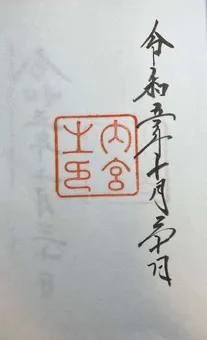 令和五年十月日
内宮
之印